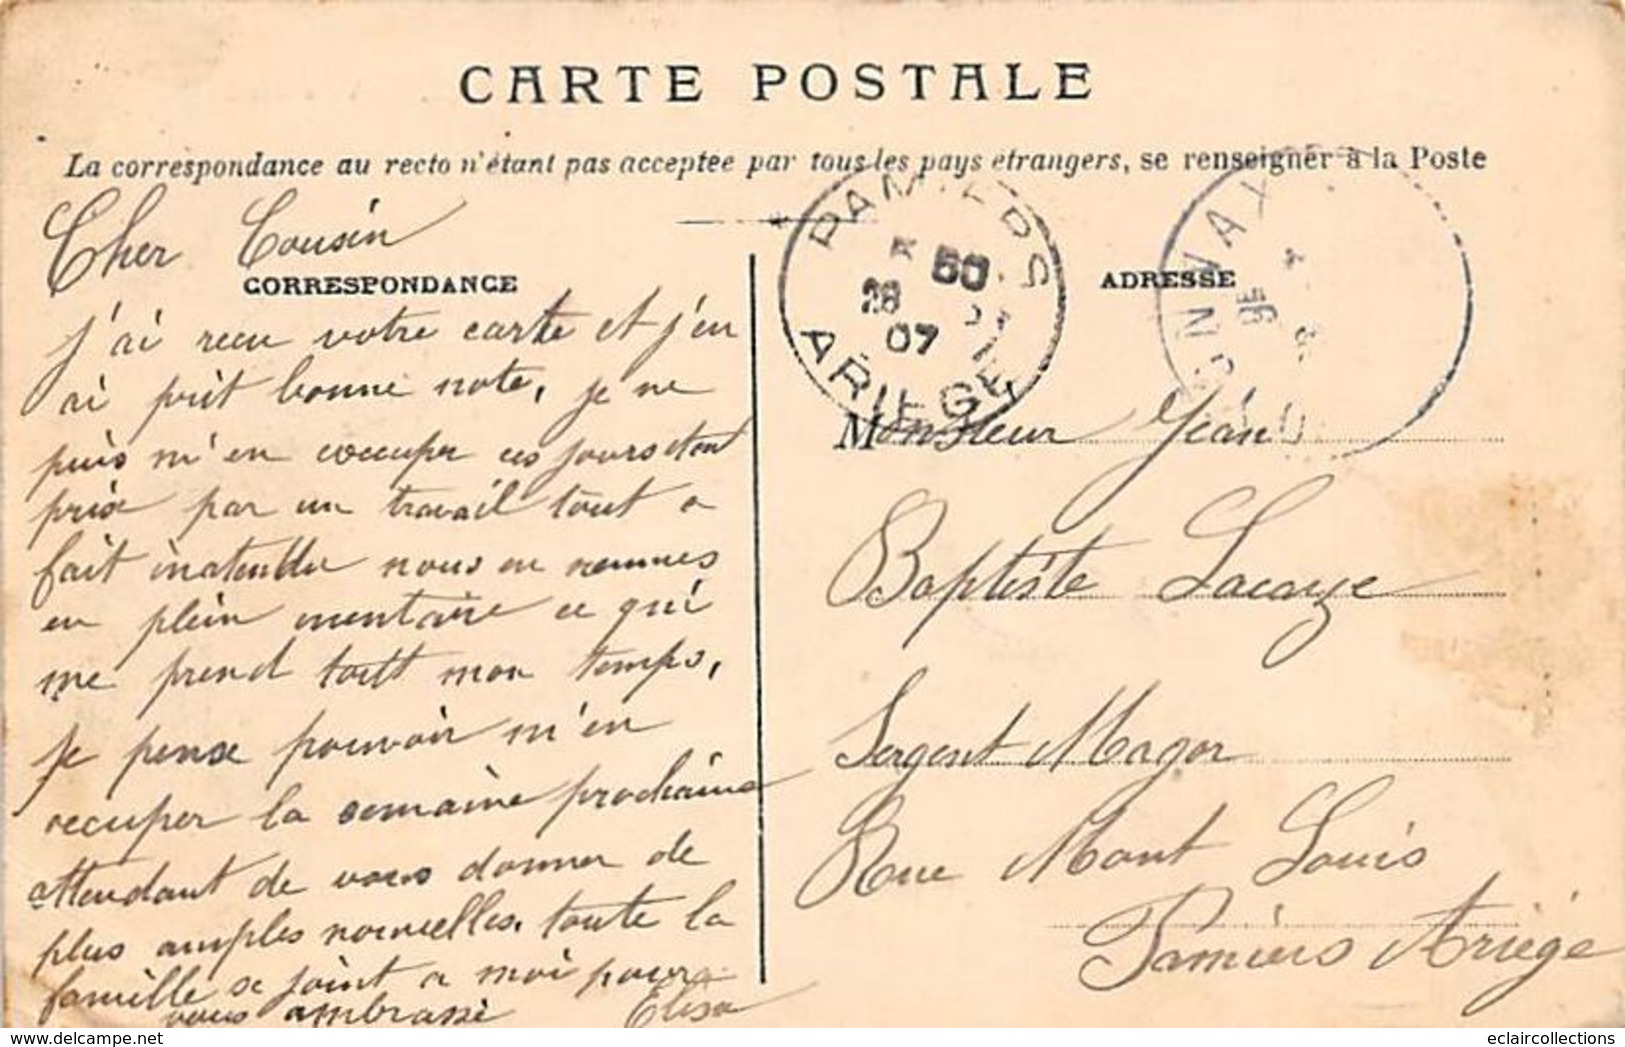 CARTE POSTALE
La correspondance au recto n'étant pas acceptée par tous les pays étrangers, se renseigner à la Poste
Cher Cousin
CORRESPONDANCE
j'ai recu votre carte et j'en
ai prit bonne note, je ne
puis m'en occuper ces jours etant
prix par un travail tout a
fait inatendu nous en sommes
en plein inventaire ce qui
me prend tout mon temps,
je pense pouvoir m'en
occuper la semaine prochaine
attendant de vous donner de
plus amples nouvelles. toute la
famille se joint a moi pour
vous ambrassé Elisa
PAMIERS
50
28
07
ARIEGE
ADRESSE
Monsieur Jean
Baptiste Lacaze
Sergent Magor
Rue Mont Louis
Pamiers Ariége
eclaircollections